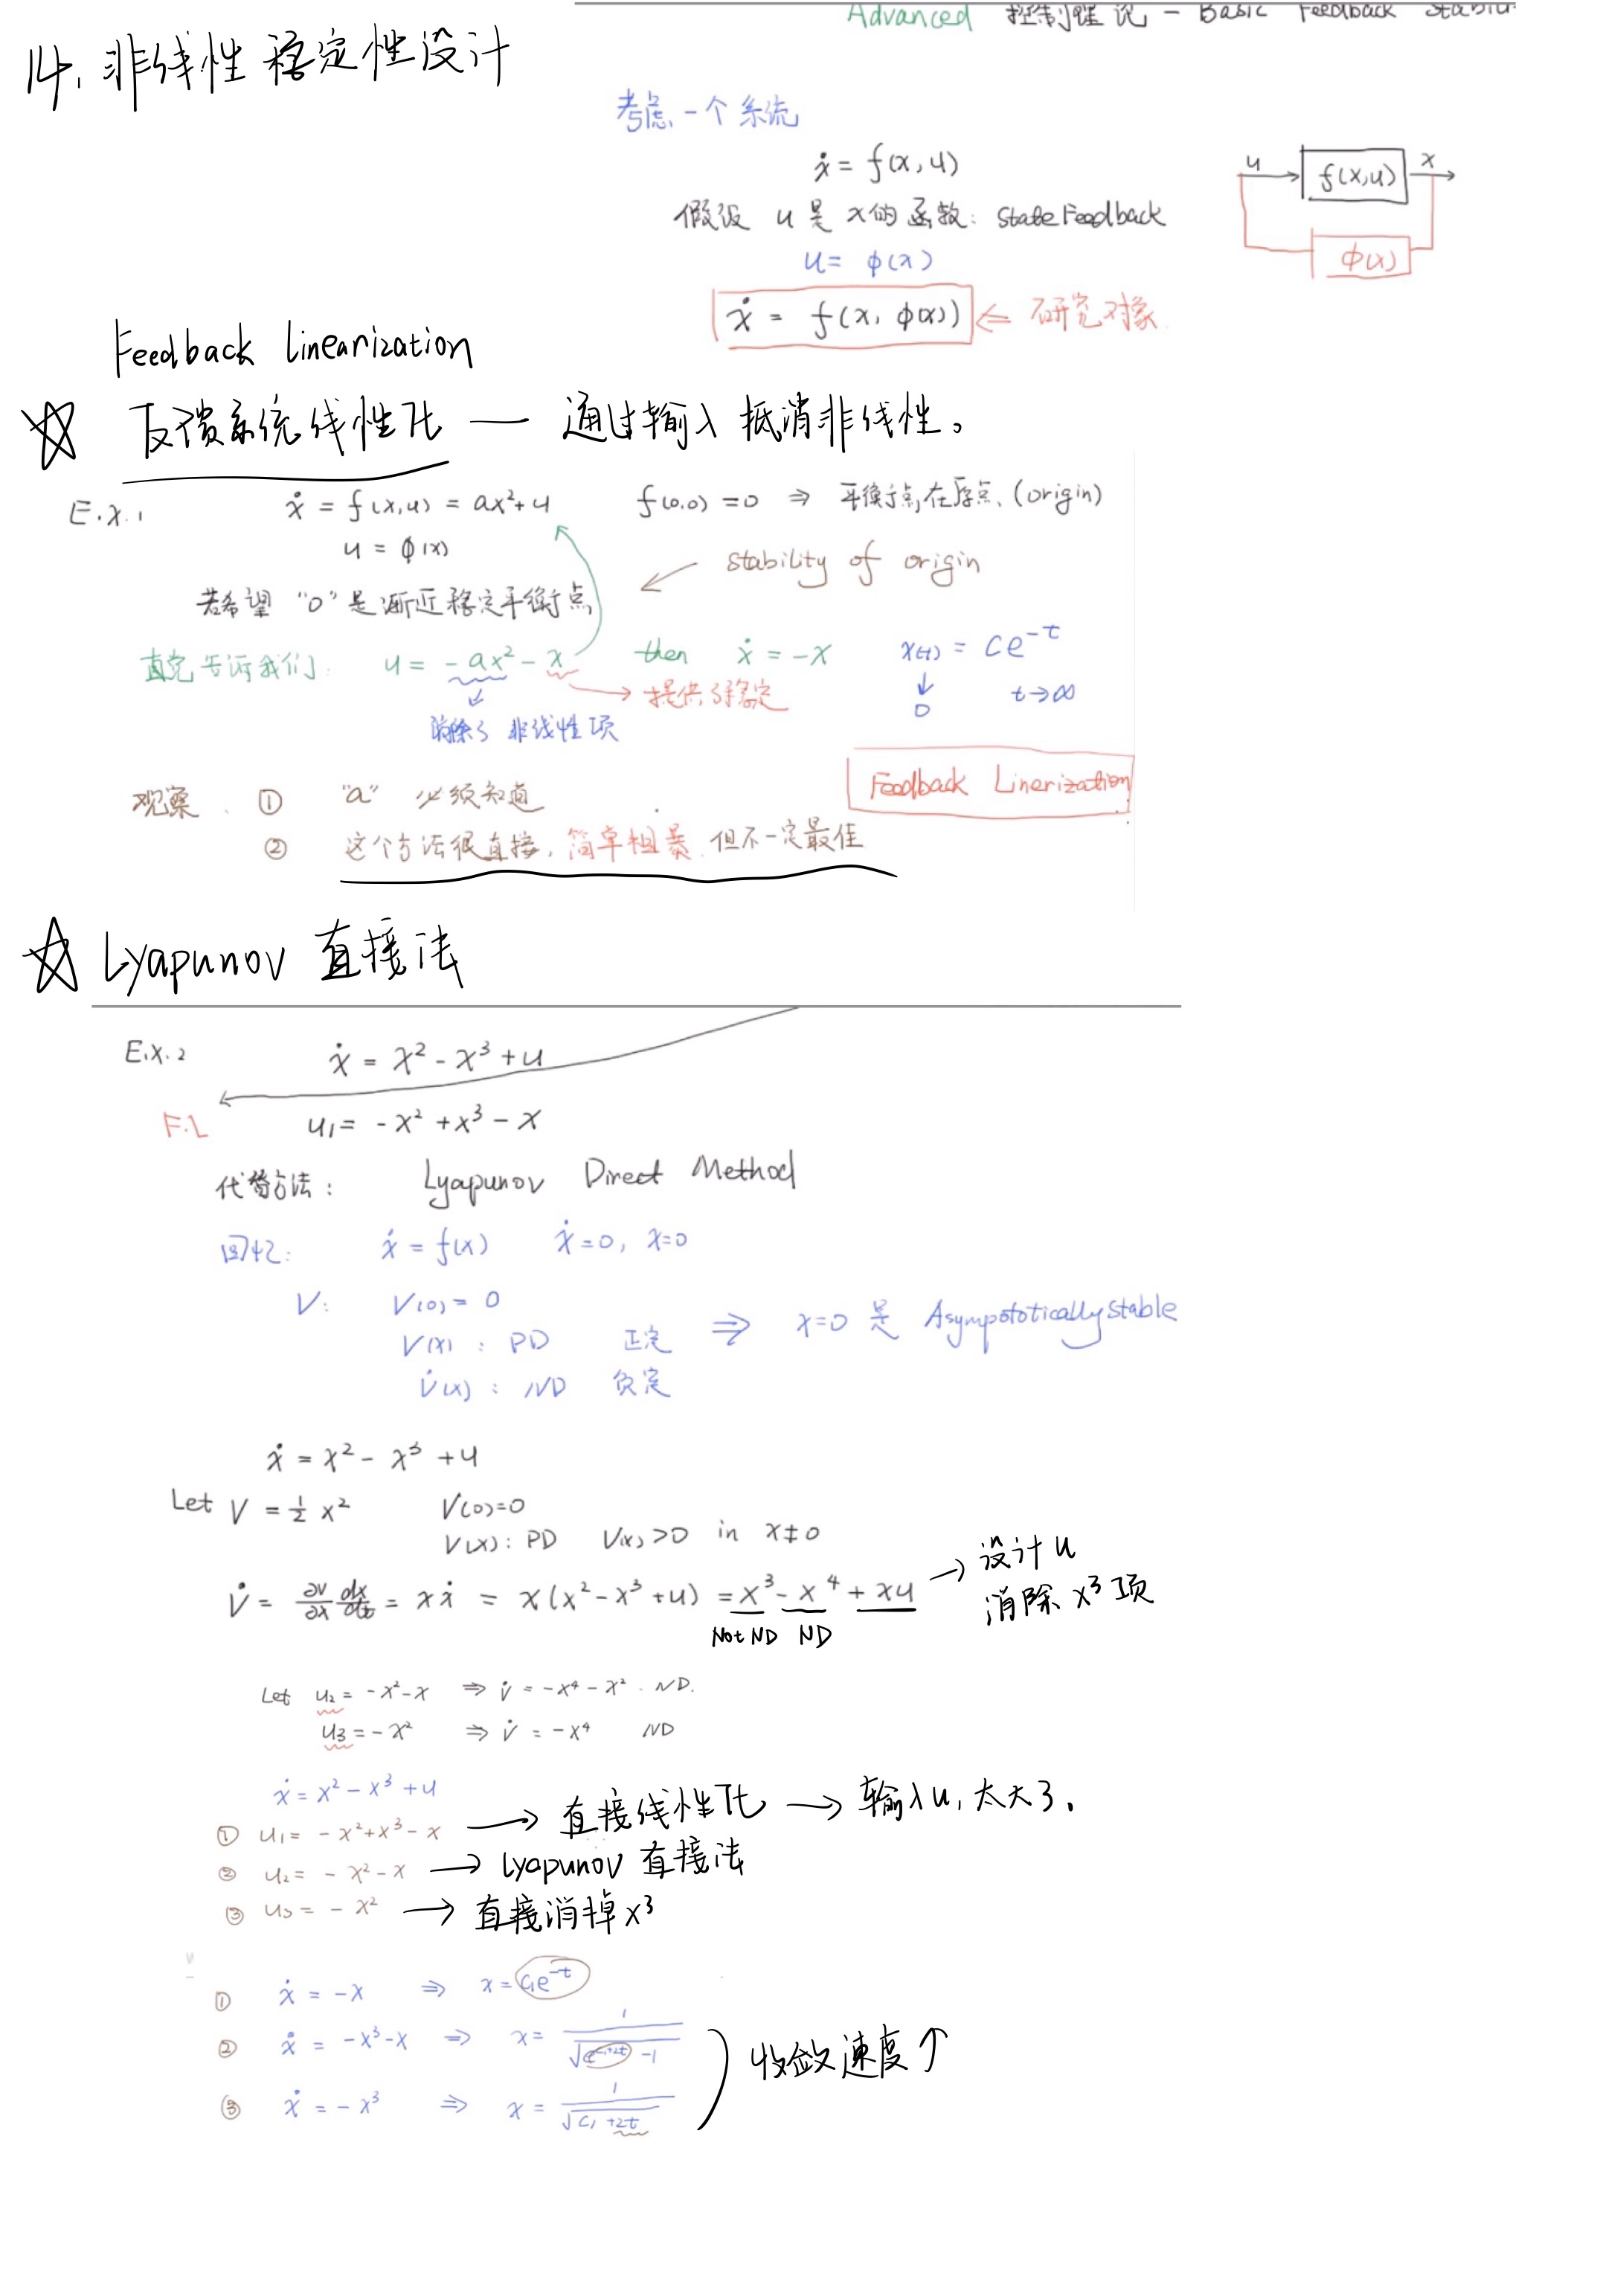 Advanced 控制理论 - Basic Feedback
14. 非线性稳定性设计
考虑一个系统
ẋ = f(x, u)
假设 u 是 x的函数: State Feedback
u = φ(x)
ẋ = f(x, φ(x)) ⇐ 研究对象
u → f(x,u) x →
φ(x)
Feedback Linearization
☆ 反馈系统线性化 — 通过输入抵消非线性。
E.X.1 ẋ = f(x,u) = ax² + u f(0,0) = 0 ⇒ 平衡点在原点、(origin)
u = φ(x)
← stability of origin
若希望 "0" 是渐近稳定平衡点
直觉告诉我们: u = -ax² - x then ẋ = -x x(t) = Ce^{-t}
→ 提供了稳定 ↓ 0 t→∞
消除了非线性项
Feedback Linerization
观察、 ① "a" 必须知道
② 这个方法很直接, 简单粗暴, 但不一定最佳
☆ Lyapunov 直接法
E.X.2 ẋ = x² - x³ + u
F.L u₁ = -x² + x³ - x
代替方法: Lyapunov Direct Method
回忆: ẋ = f(x) ẋ = 0, x = 0
V: V(0) = 0
V(x) : PD 正定 ⇒ x=0 是 Asympototically Stable
V̇(x) : ND 负定
ẋ = x² - x³ + u
Let V = ½ x² V(0)=0
V(x): PD V(x)>0 in x≠0
V̇ = ∂V/∂x dx/dt = xẋ = x(x² - x³ + u) = x³ - x⁴ + xu → 设计 u
消除 x³ 项
Not ND ND
Let u₂ = -x² - x ⇒ V̇ = -x⁴ - x² . ND.
u₃ = -x² ⇒ V̇ = -x⁴ ND
ẋ = x² - x³ + u
① u₁ = -x² + x³ - x → 直接线性化 → 输入u₁太大了.
② u₂ = -x² - x → Lyapunov 直接法
③ u₃ = -x² → 直接消掉 x³
① ẋ = -x ⇒ x = C₁e^{-t}
② ẋ = -x³ - x ⇒ x = 1/√(e^{+2t} - 1)
③ ẋ = -x³ ⇒ x = 1/√(C₁ + 2t)
) 收敛速度↑